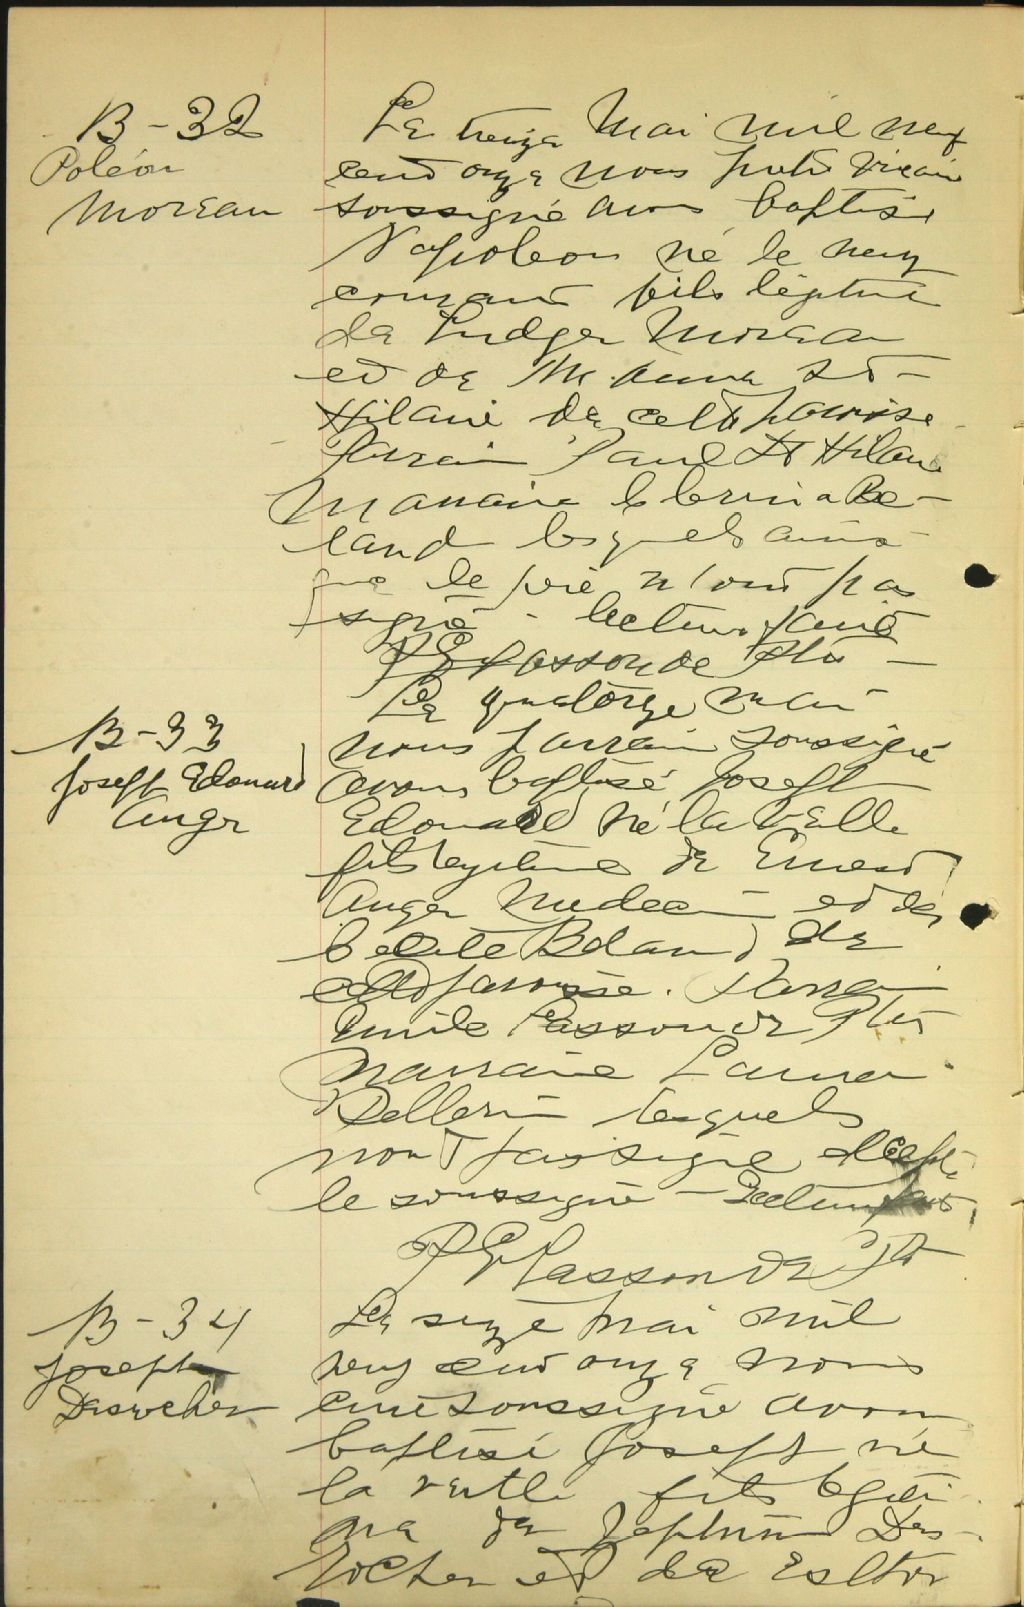 B-32
Poléon
Moreau
Le treize Mai mil neuf
cent onze nous prêtre vicaire
soussigné avons baptisé
Napoleon né le neuf
courant fils légitime
de Ludger Moreau
et de M. Anna St-
Hilaire de cette paroisse
Parrain Paul St Hilaire
Marraine Be-
land lesquels ainsi
que le père n'ont pas
signé - lecture faite
Lassonde Ptre -
B-33
Joseph Edouard
Auger
Le quatorze mai
nous parrain soussigné
avons baptisé Joseph
Edouard né la veille
fils legitime de Ernest
Auger Medecin et de
Beland de
cette paroisse. Parrain
Emile Lassonde Ptre
Marraine Laura
Pellerin lesquels
n'ont pas signé excepté
le soussigné - Lecture faite
P E Lassonde Ptre
B-34
Joseph
Desrocher
Le seize Mai mil
neuf cent onze nous
curé soussigné avons
baptisé Joseph né
la veille fils légiti
me de Zephirin Des-
rocher et de Esther